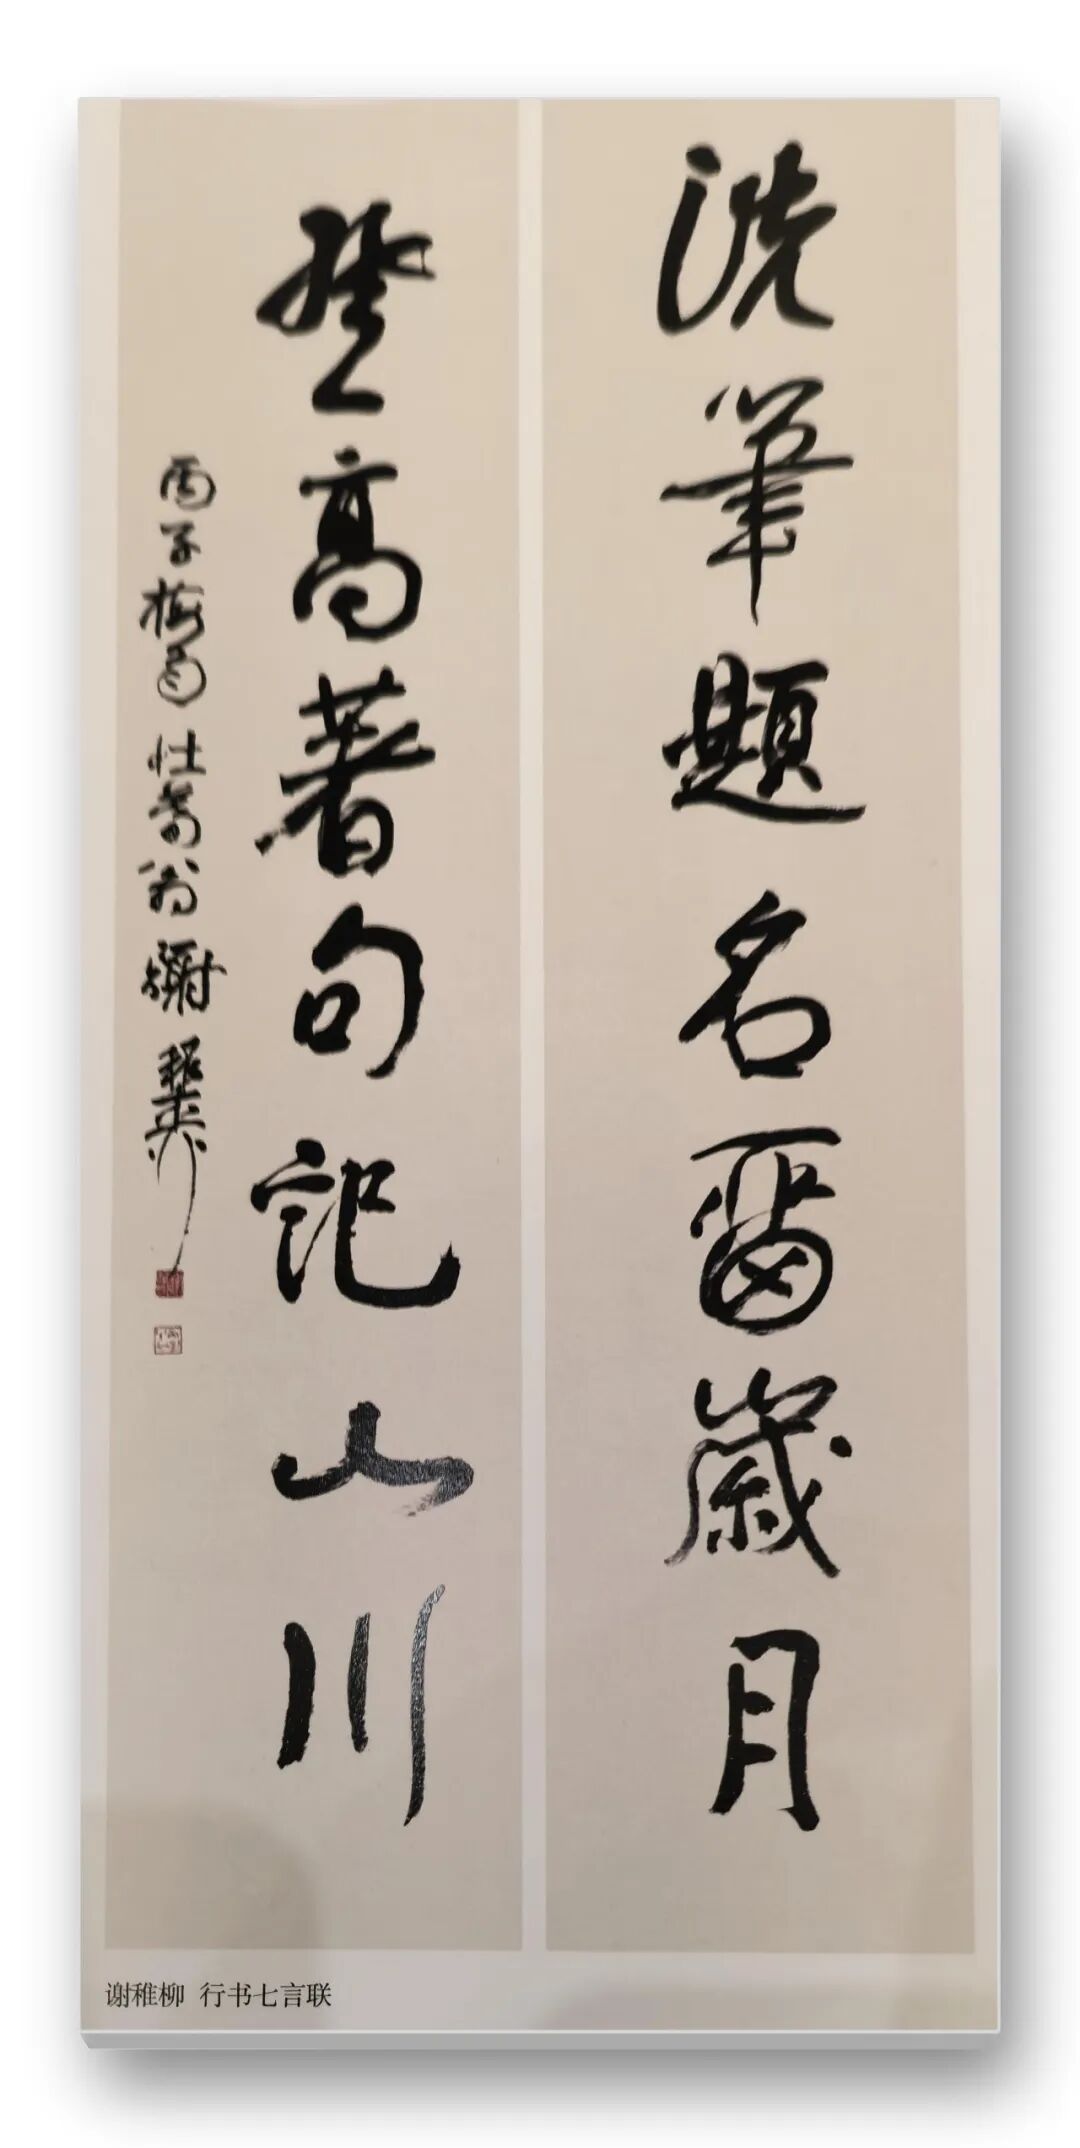 洗筆題名留歲月
登高著句記山川
丙子梅月 壯暮翁 謝稚柳
谢稚柳 行书七言联